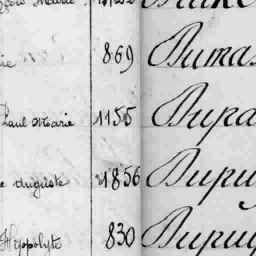 Marie
ie 869 Dumas
Paul Marie 1155 Dupa
e Auguste 1856 Dupu
Hyppolyte 830 Dupuy